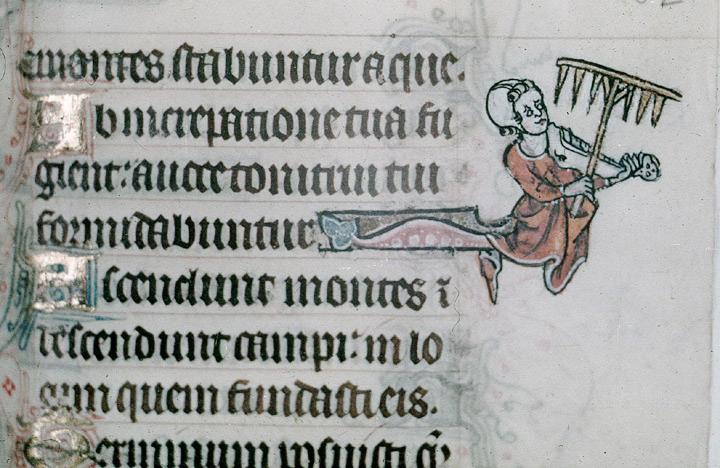 montes stabuntur aque.
Ab increpatione tua fu
gient: a uoce tonitrui tui
formidabuntur
Ascendunt montes ⁊
descendunt campi: in lo
cum quem fundasti eis.
Terminum posuisti